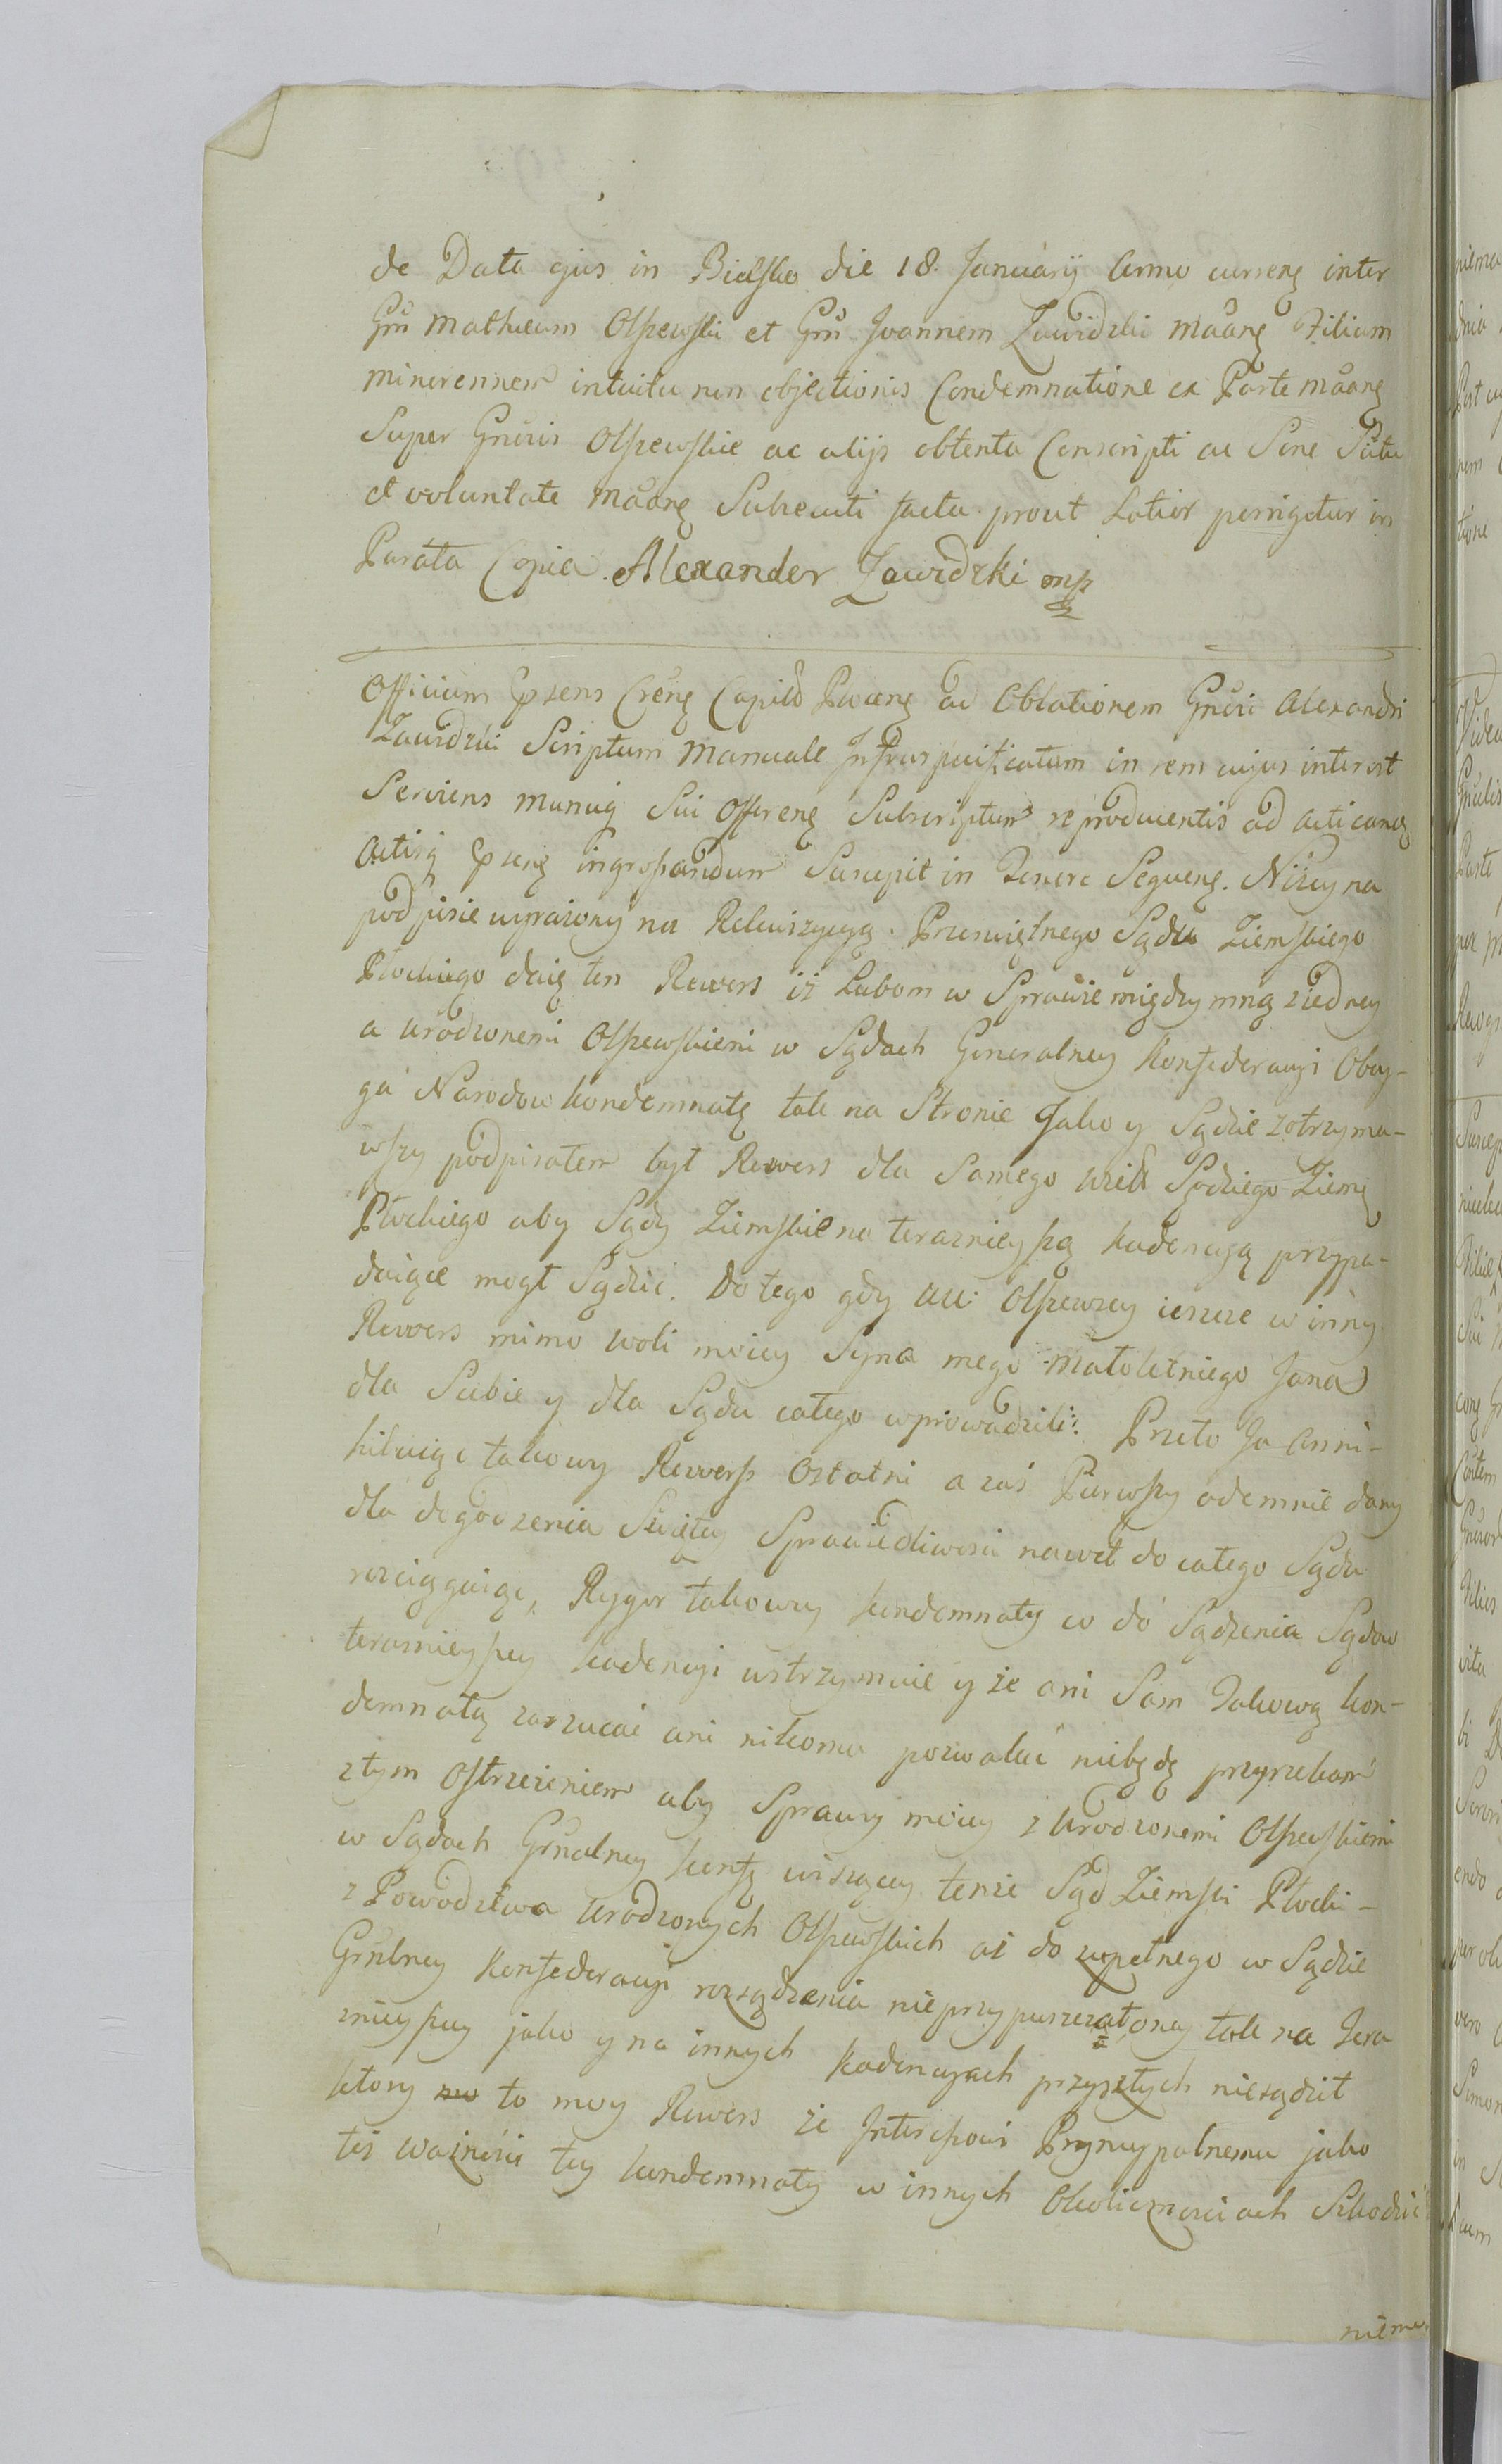 de Data ejus in Bielsko die 18. Januarij Anno curreñ inter
Gm̃ Matheum Olszewski et Gm̃ Joannem Zawidzki maãñ Filium
minorennem intuitu non objectionis Condemnatione ex Parte maãñ
Super Gñsis Olszewskie ac alijs obtenta Conscripti ac Sine Scitu
et voluntate maãñ Subsecuti facta prout Latior porrigetur in
Parata Copia. Alexander Zawidzki mp
Officium Cren Capit ad Oblationem Gñsi Alexandri
Zawidzki Scriptum Manuale Infraspecificatum in rem cujus interest
Serviens manuq Sui Offerenẽ Subscriptum reproducentis ad acticanẽ
Actisq ingrossandum Suscepit in Tenore Sequenẽ. Niżey na
podpisie wyrażony na Rekwizycyą Przeświętnego Sądu Ziemskiego
Płockiego daię ten Rewers iż Lubom w Sprawie między mną ziedney
a Urodzonemi Olszewskiemi w Sądach Generalney Konfederacyi Oboy-
ga Narodow kondemnatę tak na Stronie Jako y Sądzie zotrzyma-
wszy podpisałem był Rewers dla Samego Sędziego Ziemẽ
Płockiego aby Sądy Ziemskie na teraznieyszą kadencyą przypa-
daiące mogł Sądzić. Do tego gdy UU: Olszewscy ieszcze w inny
Rewers mimo woli moiey Syna mego Małoletniego Jana
dla Siebie y dla Sądu całego wprowadzili: Przeto Ja Anni-
hiluiąc takowy Rewersz Ostatni a zaś Pierwszy odemnie dany
dla dogodzenia Świętey Sprawiedliwosci nawet do całego Sądu
rozciągaiąc, Rygor takowey kondemnaty w do Sądzenia Sądow
teraznieyszey kadencyi wstrzymuię y że ani Sam Takową kon-
demnatą zarzucać ani nikomu pozwalać niebędę przyrzekam
ztym Ostrzeżeniem aby Sprawy moiey z Urodzonemi Olszewskiemi
w Sądach Grñalney konfẽ wiszącey tenże Sąd Ziemski Płocki-
z Powodztwa Urodzonych Olszewskich aż do zupełnego w Sądzie
Grñlney Konfederacyi rozsądzenia nieprzypuszczał ony tak na Tera
znieyszey jako y na innych Kadencyach przyszłych niesądził
ktory to moy Rewers że Interessowi Pryncypalnemu jako
też ważności tey kondemnaty w innych Okolicznosciach Szkodzić
niema